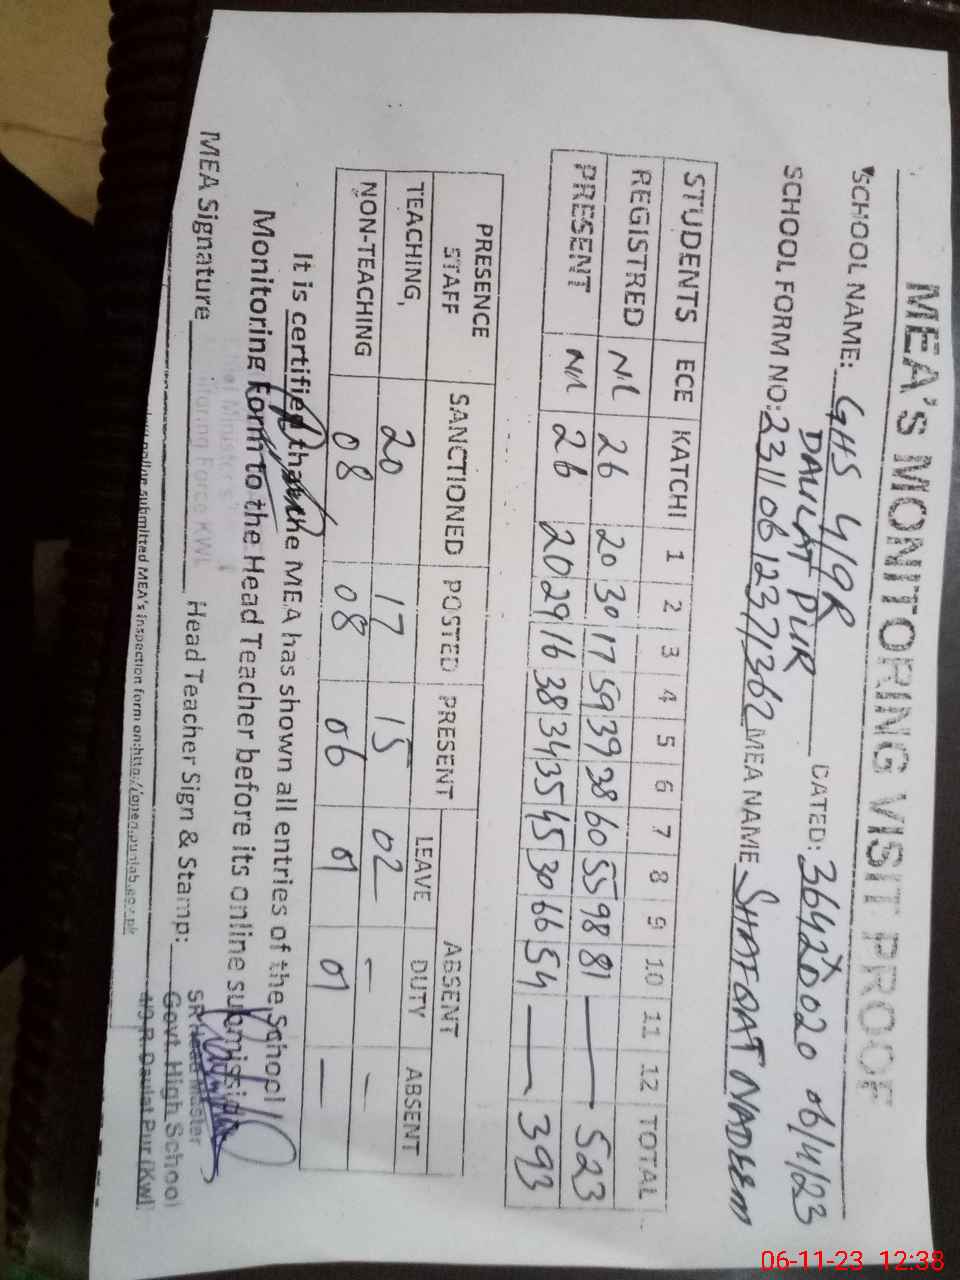 MEA'S MONITORING VISIT PROOF
SCHOOL NAME: GHS 4/9R DATED: 36420020 06/11/23
DAULAT PUR
SCHOOL FORM NO: 23110612371362 MEA NAME SHAFQAT NADEEM
STUDENTS ECE KATCHI 1 2 3 4 5 6 7 8 9 10 11 12 TOTAL
REGISTRED NIL 26 20 30 17 59 39 38 60 55 98 81 — 523
PRESENT NIL 26 20 29 16 38 34 35 45 30 66 54 — 393
PRESENCE STAFF SANCTIONED POSTED PRESENT ABSENT
LEAVE DUTY ABSENT
TEACHING, 20 17 15 02 - -
NON-TEACHING 08 08 06 01 01 —
It is certified that the MEA has shown all entries of the School
Monitoring Form to the Head Teacher before its online submission
MEA Signature Head Teacher Sign & Stamp:
SR Head Master
Govt. High School
4/9-R Daulat Pur (Kwl)
Monitoring Force KWL
online submitted MEA's inspection form on:
06-11-23 12:38